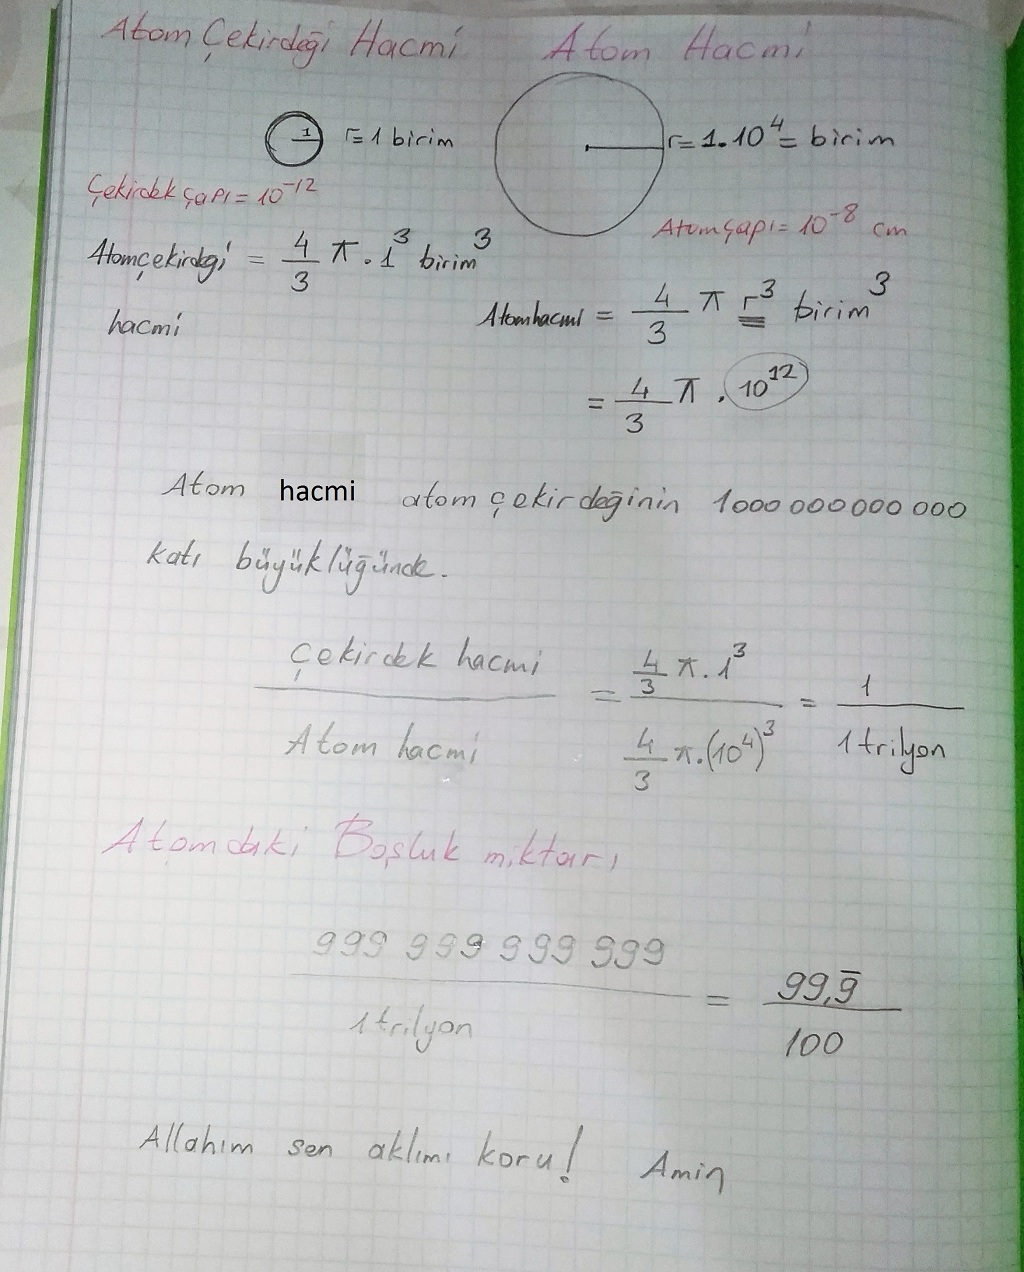 Atom Çekirdeği Hacmi
Atom Hacmi
1
r=1 birim
r=1.10⁴= birim
Çekirdek çapı=10⁻¹²
Atom çapı=10⁻⁸ cm
Atom çekirdeği = 4/3 π.1³ birim³
hacmi
Atom hacmi = 4/3 π r³ birim³
= 4/3 π . 10¹²
Atom hacmi atom çekirdeğinin 1000 000 000 000
katı büyüklüğünde.
Çekirdek hacmi / Atom hacmi = 4/3 π.1³ / 4/3 π.(10⁴)³ = 1 / 1 trilyon
Atomdaki Boşluk miktarı
999 999 999 999 / 1 trilyon = 99,9̅ / 100
Allahım sen aklımı koru! Amin